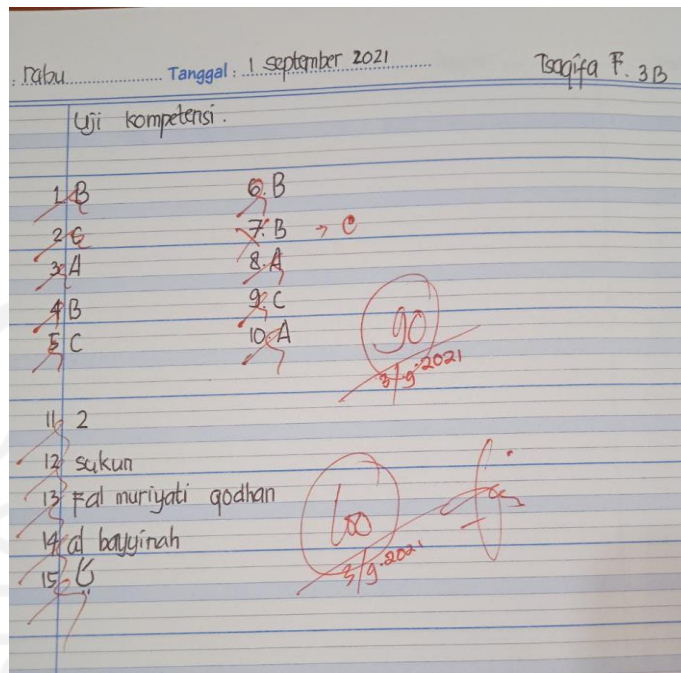 : rabu Tanggal : 1 september 2021 Tsaqifa F. 3B
Uji kompetensi.
1. B 6. B
2. C 7. B → C
3. A 8. A
4. B 9. C
5. C 10. A
90
3/9-2021
11. 2
12. sukun
13. Fal muriyati qodhan
14. al bayyinah
100
3/9-2021
15.